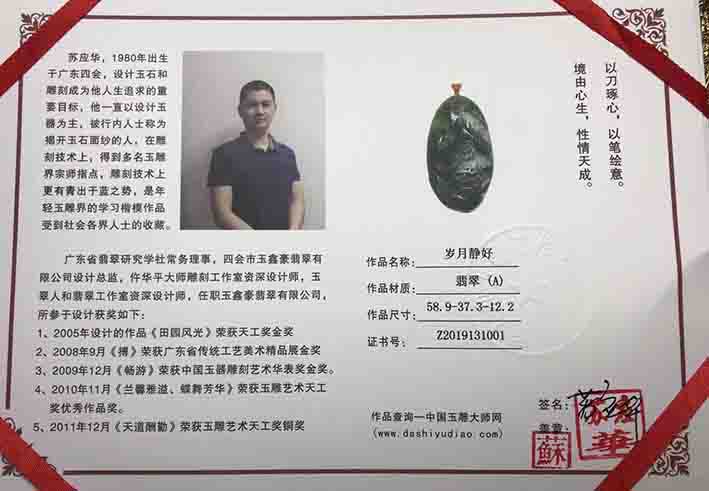 苏应华，1980年出生
于广东四会，设计玉石和
雕刻成为他人生追求的重
要目标，他一直以设计玉
器为主，被行内人士称为
揭开玉石面纱的人，在雕
刻技术上，得到多名玉雕
界宗师指点，雕刻技术上
更有青出于蓝之势，是年
轻玉雕界的学习楷模作品
受到社会各界人士的收藏。
以刀琢心，以笔绘意。
境由心生，性情天成。
广东省翡翠研究学社常务理事，四会市玉鑫豪翡翠有
限公司设计总监，仵华平大师雕刻工作室资深设计师，玉
翠人和翡翠工作室资深设计师，任职玉鑫豪翡翠有限公司，
所参于设计获奖如下：
1、2005年设计的作品《田园风光》荣获天工奖金奖
2、2008年9月《搏》荣获广东省传统工艺美术精品展金奖。
3、2009年12月《畅游》荣获中国玉器雕刻艺术华表奖金奖。
4、2010年11月《兰馨雅溢、蝶舞芳华》荣获玉雕艺术天工
奖优秀作品奖。
5、2011年12月《天道酬勤》荣获玉雕艺术天工奖铜奖
作品名称：岁月静好
作品材质：翡翠 (A)
作品尺寸：58.9-37.3-12.2
证书号：Z2019131001
作品查询—中国玉雕大师网
(www.dashiyudiao.com)
签名：
盖章：
蘇
華